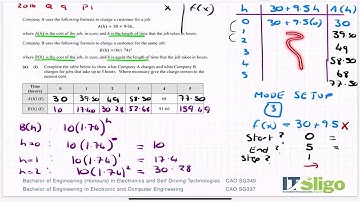 2016 Q9 P1
x | f(x)
Company A uses the following formula to charge a customer for a job:
A(h) = 30 + 9·5h,
where A(h) is the cost of the job, in euro, and h is the length of time that the job takes, in hours.
Company B uses the following formula to charge the customer for the same job:
where B(h) is the cost of the job, in euro, and h again is the length of time that the job takes, in hours.
(a) (i) Complete the table below to show what Company A charges and what Company B
charges for jobs that take up to 5 hours. Where necessary give the charge correct to the
nearest cent.
Time (hours) 0 1 2 3 4 5
A(h) (€) 30 39.50 49 58.50 68 77.50
B(h) (€) 10 17.40 30.28 52.68 91·66 159.49
B(h) 10(1.74)^h
h=0: 10(1.74)^0 = 10
h=1: 10(1.74)^1 = 17.4
h=2: 10(1.74)^2 = 30.28
h 30+9.5h A(h)
0 30+9.5(0) 30
1 39.50
2 49
3 58.50
4 68
5 77.50
MODE SETUP
3
f(x) = 30+9.5x
Start? 0 =
End? 5 =
Step? 1 →
Bachelor of Engineering (Honours) in Electronics and Self Driving Technologies CAO SG349
Bachelor of Engineering in Electronic and Computer Engineering CAO SG337
IT Sligo